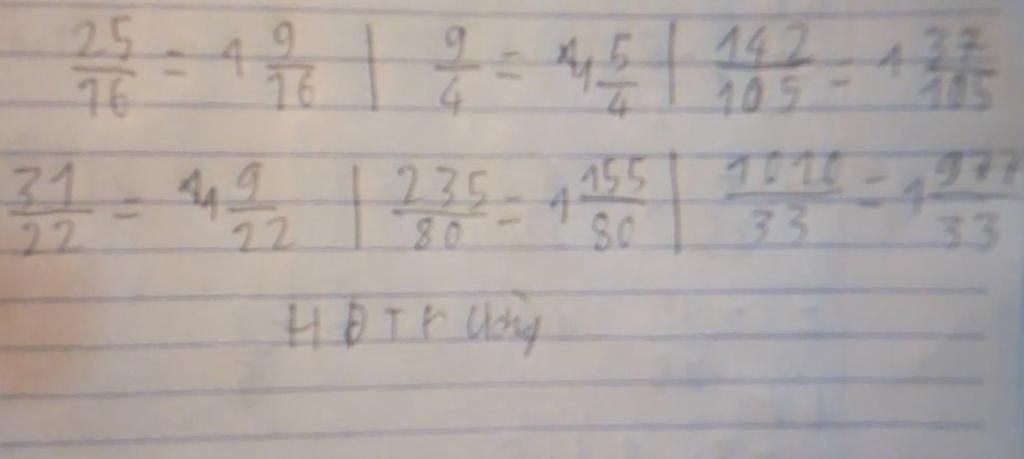 25/16 = 1 9/16 | 9/4 = 1 5/4 | 142/105 = 1 37/105
31/22 = 1 9/22 | 235/80 = 1 155/80 | 1010/33 = 1 977/33
HĐTrường